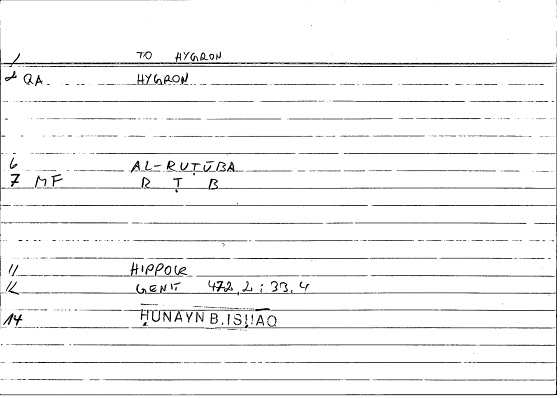 1 TO HYGRON
2 QA HYGRON
6 AL-RUṬŪBA
7 MF R Ṭ B
11 HIPPOCR
12 GENIT 472,2 ; 33,4
14 ḤUNAYN B. ISḤĀQ